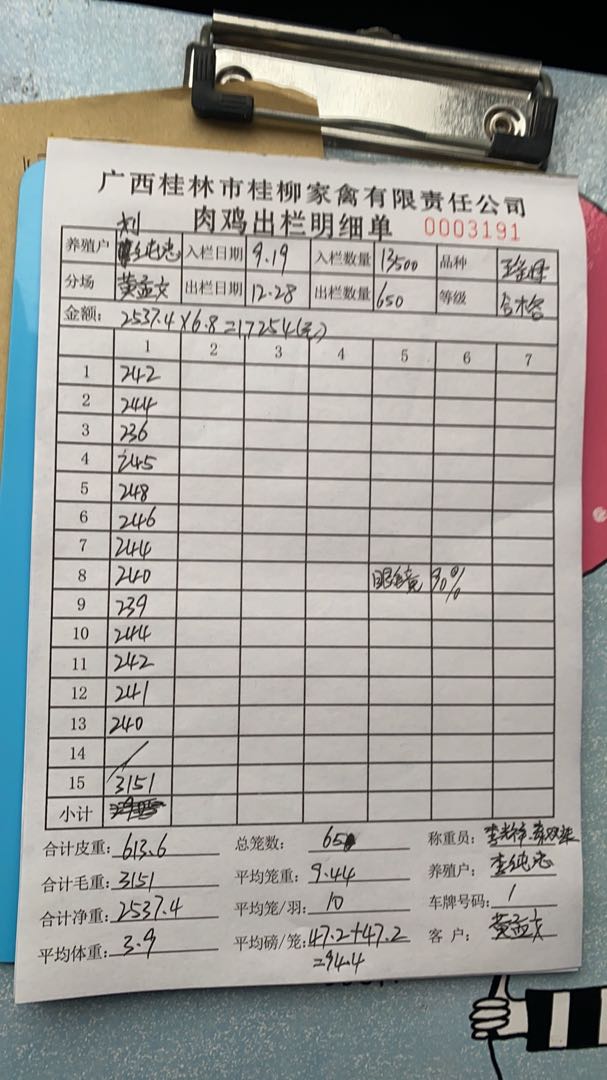 广西桂林市桂柳家禽有限责任公司
肉鸡出栏明细单 0003191
养殖户 刘 李纯忠 入栏日期 9.19 入栏数量 13500 品种
分场 黄孟文 出栏日期 12.28 出栏数量 650 等级 合格
金额: 2537.4×6.8=17254(元)
1 2 3 4 5 6 7
1 242
2 244
3 236
4 245
5 248
6 246
7 244
8 240 眼镜 90%
9 239
10 244
11 242
12 241
13 240
14 /
15 3151
小计
合计皮重: 613.6 总笼数: 65 称重员:
合计毛重: 3151 平均笼重: 9.44 养殖户: 李纯忠
合计净重: 2537.4 平均笼/羽: 10 车牌号码: 1
平均体重: 3.9 平均磅/笼: 47.2+47.2 客户: 黄孟文
=94.4